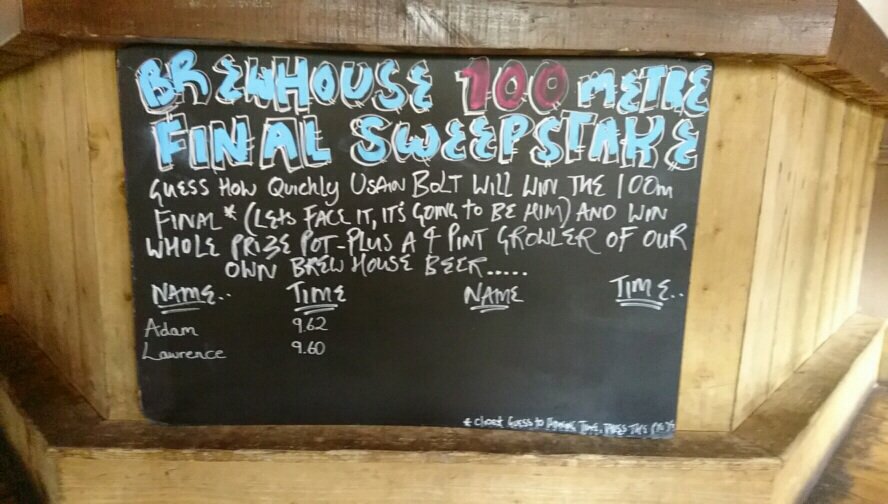 BREWHOUSE 100 METRE
FINAL SWEEPSTAKE
GUESS HOW QUICKLY USAIN BOLT WILL WIN THE 100m
FINAL* (LETS FACE IT, IT'S GOING TO BE HIM) AND WIN
WHOLE PRIZE POT-PLUS A 4 PINT GROWLER OF OUR
OWN BREW HOUSE BEER.....
NAME.. TIME NAME TIME..
Adam 9.62
Lawrence 9.60
* Closest Guess to